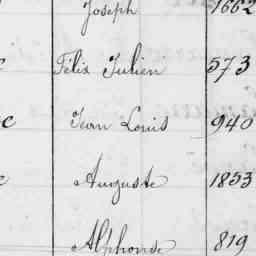 Joseph 1662
Félix Julien 573
c Jean Louis 940
Auguste 1853
Alphonse 819